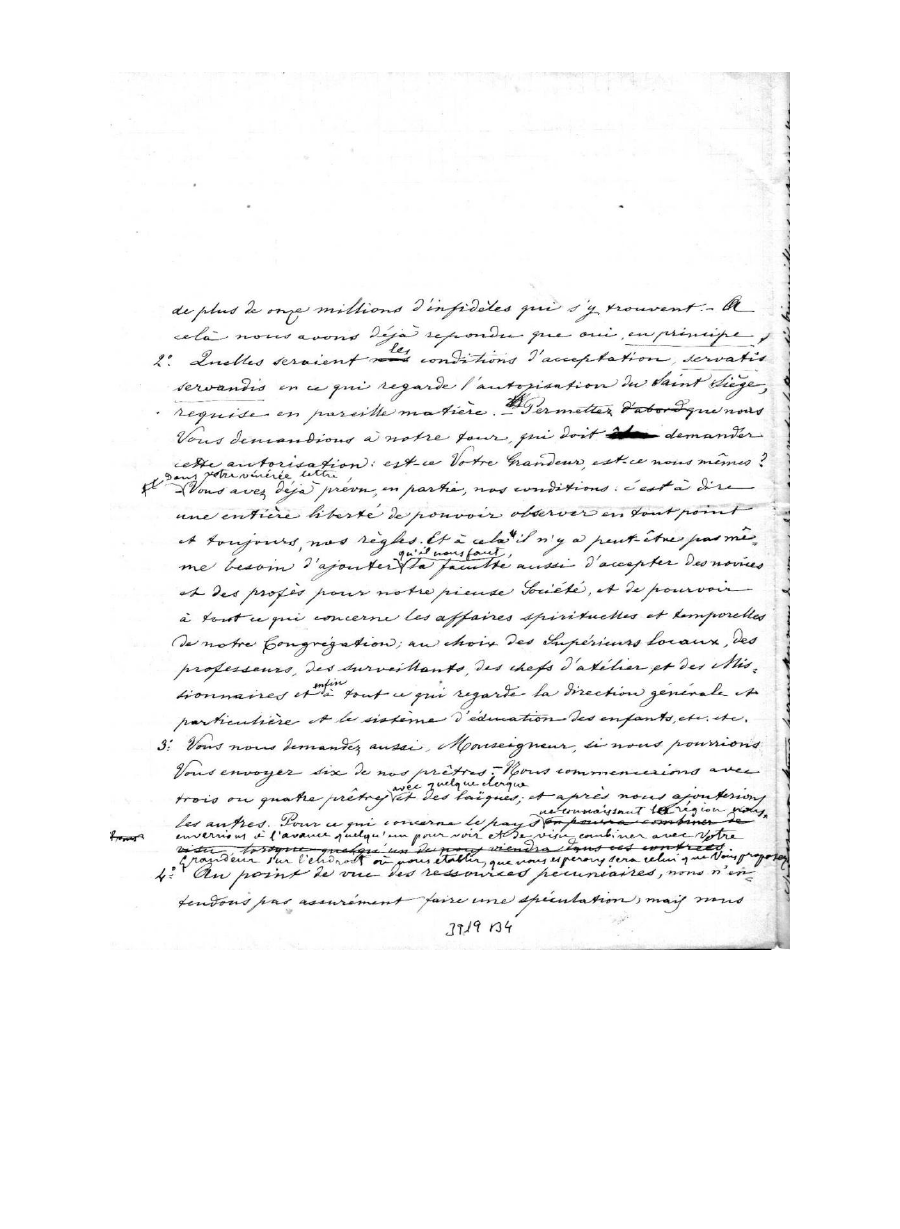 de plus de onze millions d'infidèles qui s'y trouvent. – A
celà nous avons déjà repondu que oui, en principe,
2.° Quelles seraient les conditions d'acceptation, servatis
servandis en ce qui regarde l'autorisation du Saint Siège,
requise en pareille matière. – Permettez d'abord que nous
Vous demandions à notre tour, qui doit demander
cette autorisation: est-ce Votre Grandeur, est-ce nous mêmes?
Dans votre vénérée lettre
Vous avez déjà prévu, en partie, nos conditions: c'est à dire
une entière liberté de pouvoir observer en tout point
et toujours, nos règles. Et à celà il n'y a peut-être pas mê-
qu'il nous faut,
me besoin d'ajouter la faculté aussi d'accepter des novices
et des profès pour notre pieuse Société, et de pourvoir
à tout ce qui concerne les affaires spirituelles et temporelles
de notre Congrégation; au choix des Supérieurs locaux, des
professeurs, des surveillants, des chefs d'atélier, et des Mis-
sionnaires et enfin à tout ce qui regarde la direction générale et
particulière et le sistème d'éducation des enfants, etc. etc.
3.° Vous nous demandez aussi, Monseigneur, si nous pourrions
Vous envoyer six de nos prêtres. – Nous commencerions avec
avec quelque clerque
trois ou quatre prêtres et des laïques; et après nous ajouterions
ne connaissant la région nous
les autres. Pour ce qui concerne le pays on pourra combiner de
enverrions à l'avance quelqu'un pour voir et de visu combiner avec Votre
visu, lorsque quelqu'un de nous viendra dans ces contrées.
Grandeur sur l'endroit où nous établir, que nous espérons sera celui que Vous proposez
4.° Au point de vue des ressources pécuniaires, nous n'en-
tendons pas assurément faire une spéculation; mais nous
3919 B4